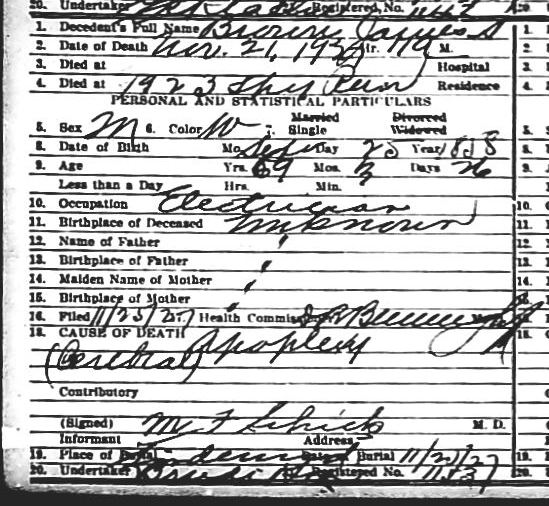 20. Undertaker Registered No. 1142
1. Decedent's Full Name Brown James S
2. Date of Death Nov. 21, 1927 Hr. M.
3. Died at Hospital
4. Died at 1923 Spy Run Residence
PERSONAL AND STATISTICAL PARTICULARS
Married Divorced
5. Sex M 6. Color W 7. Single Widowed
8. Date of Birth Mo. Sep Day 25 Year
9. Age Yrs. 69 Mos. Days 26
Less than a Day Hrs. Min.
10. Occupation Electrician
11. Birthplace of Deceased Unknown
12. Name of Father "
13. Birthplace of Father "
14. Maiden Name of Mother "
15. Birthplace of Mother "
16. Filed 11/25/27 Health Commissioner
18. CAUSE OF DEATH Apoplexy
(Cerebral)
Contributory
(Signed) M F Schick M. D.
Informant Address
19. Place of Burial Lindenwood Date of Burial 11/25/27
20. Undertaker Registered No.